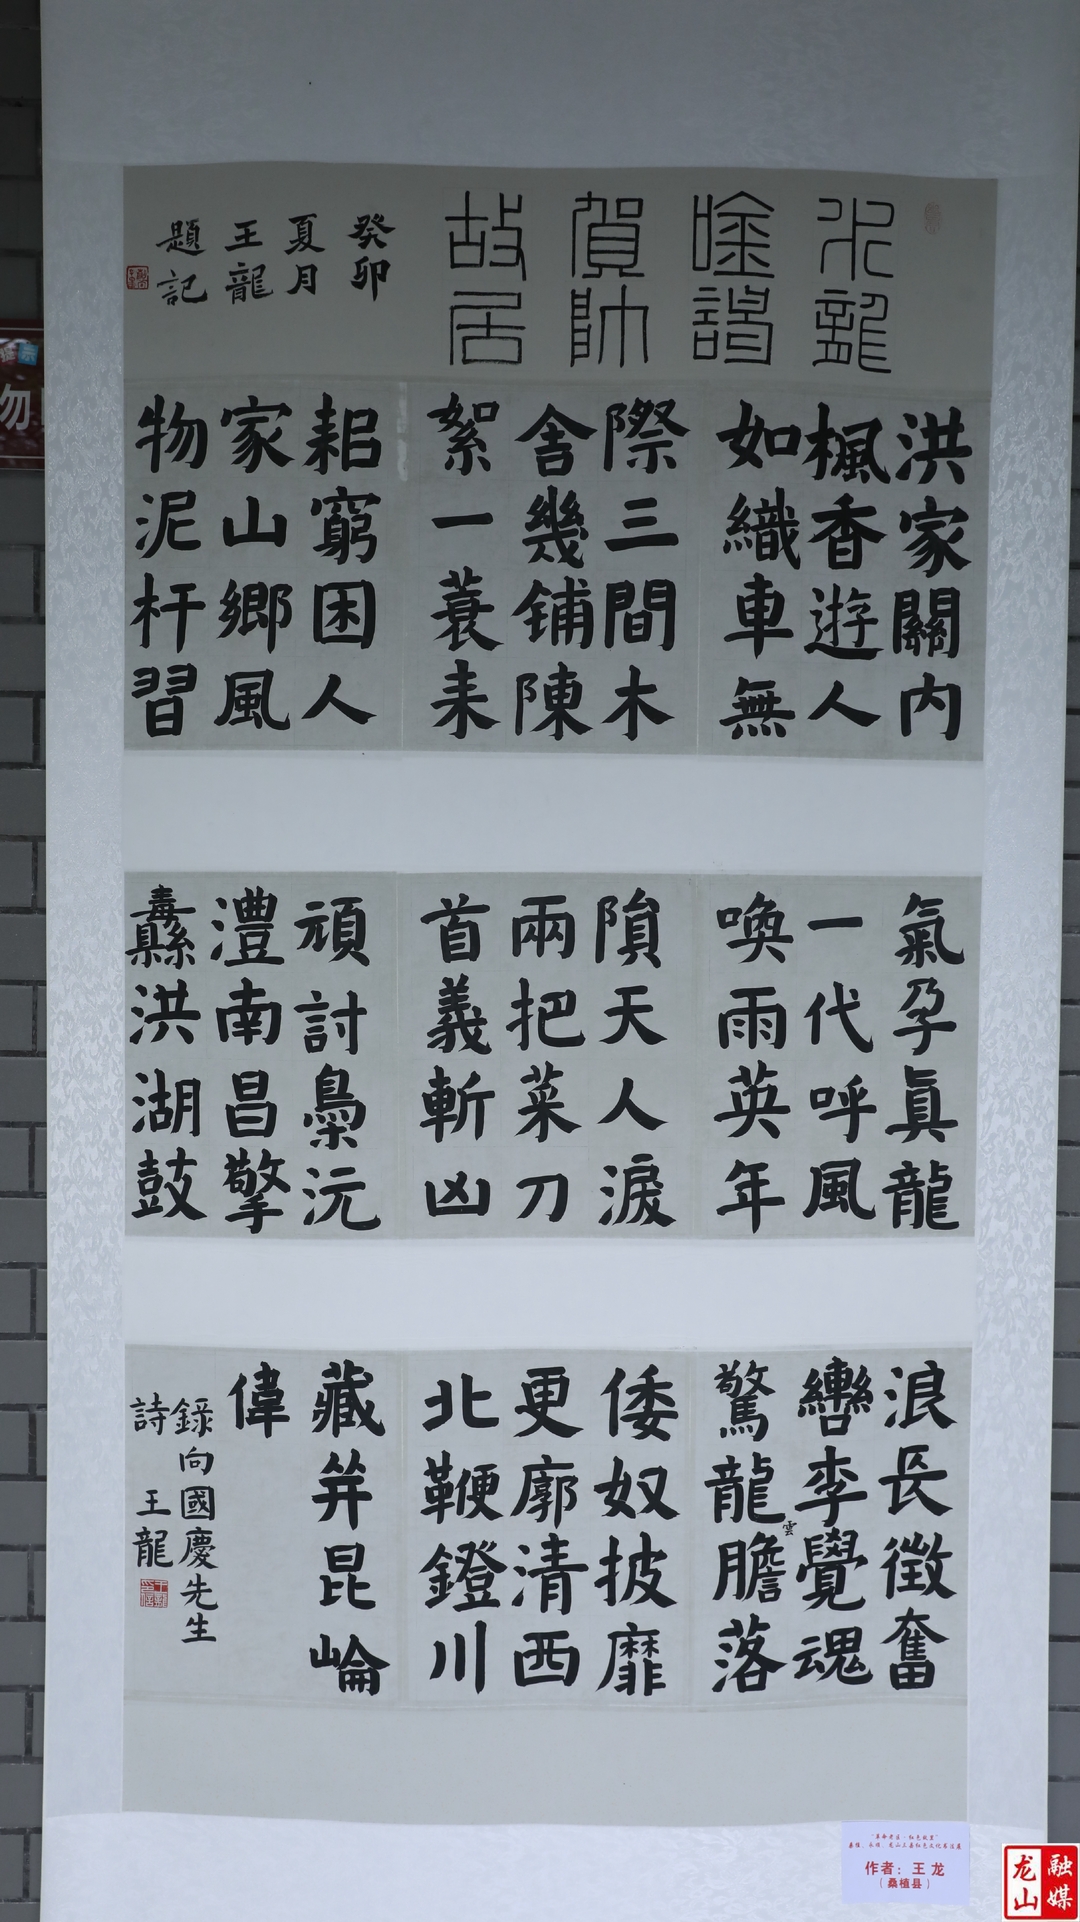 水龍
唫謁
賀帥
故居
癸卯
夏月
王龍
題記
洪家關内
楓香遊人
如織車無
際三間木
舍幾鋪陳
絮一蓑耒
耜窮困人
家山鄉風
物泥杆習
氣孕眞龍
一代呼風
喚雨英年
隕天人淚
兩把菜刀
首義斬凶
頑討梟沅
澧南昌擎
纛洪湖鼓
浪長徵奮
轡李覺魂
驚龍雲膽落
倭奴披靡
更廓清西
北鞭鐙川
藏并昆崘
偉
錄向國慶先生
詩 王龍
作者：王龙
（桑植县）
龙山
融媒
勿